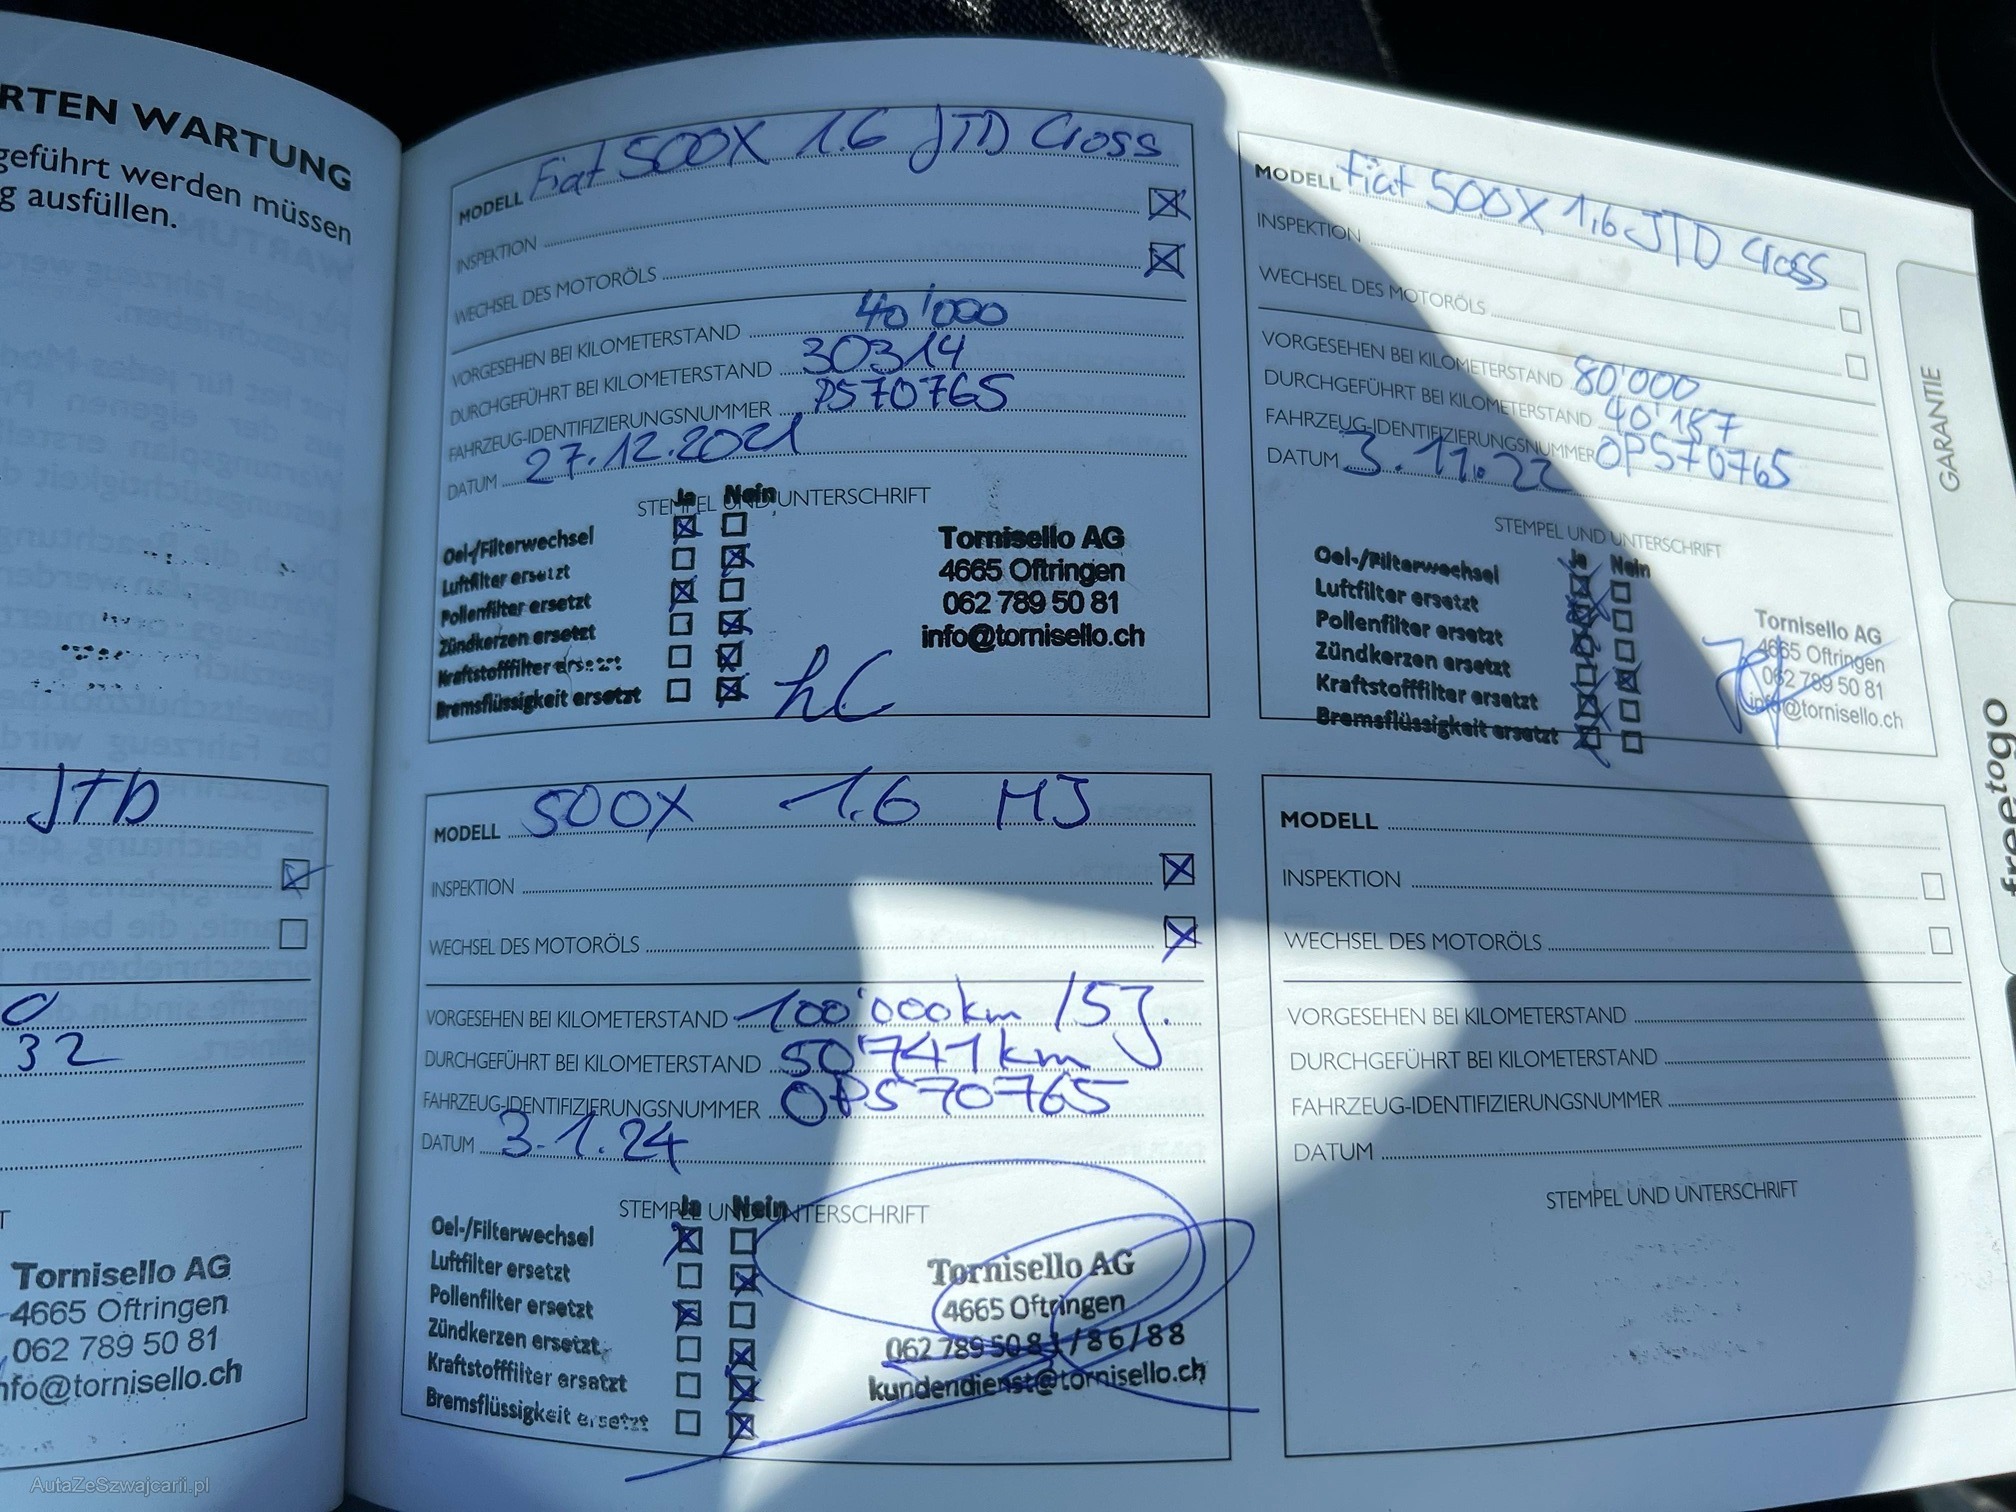 RTEN WARTUNG
geführt werden müssen
g ausfüllen.
JTD
32
Tornisello AG
4665 Oftringen
062 789 50 81
nfo@tornisello.ch
MODELL Fiat 500X 1.6 JTD Cross
INSPEKTION
WECHSEL DES MOTORÖLS
VORGESEHEN BEI KILOMETERSTAND 40'000
DURCHGEFÜHRT BEI KILOMETERSTAND 30314
FAHRZEUG-IDENTIFIZIERUNGSNUMMER P570765
DATUM 27.12.2021
STEMPEL UND UNTERSCHRIFT
Ja Nein
Oel-/Filterwechsel
Luftfilter ersetzt
Pollenfilter ersetzt
Zündkerzen ersetzt
Kraftstofffilter ersetzt
Bremsflüssigkeit ersetzt
Tornisello AG
4665 Oftringen
062 789 50 81
info@tornisello.ch
MODELL Fiat 500X 1,6 JTD Cross
INSPEKTION
WECHSEL DES MOTORÖLS
VORGESEHEN BEI KILOMETERSTAND 80'000
DURCHGEFÜHRT BEI KILOMETERSTAND 40'187
FAHRZEUG-IDENTIFIZIERUNGSNUMMER 0P570765
DATUM 3.11.22
STEMPEL UND UNTERSCHRIFT
Ja Nein
Oel-/Filterwechsel
Luftfilter ersetzt
Pollenfilter ersetzt
Zündkerzen ersetzt
Kraftstofffilter ersetzt
Bremsflüssigkeit ersetzt
Tornisello AG
4665 Oftringen
062 789 50 81
info@tornisello.ch
MODELL 500X 1.6 MJ
INSPEKTION
WECHSEL DES MOTORÖLS
VORGESEHEN BEI KILOMETERSTAND 100'000km /5J.
DURCHGEFÜHRT BEI KILOMETERSTAND 50'741km
FAHRZEUG-IDENTIFIZIERUNGSNUMMER 0P570765
DATUM 3.1.24
STEMPEL UND UNTERSCHRIFT
Ja Nein
Oel-/Filterwechsel
Luftfilter ersetzt
Pollenfilter ersetzt
Zündkerzen ersetzt
Kraftstofffilter ersetzt
Bremsflüssigkeit ersetzt
Tornisello AG
4665 Oftringen
062 789 50 81/86/88
kundendienst@tornisello.ch
MODELL
INSPEKTION
WECHSEL DES MOTORÖLS
VORGESEHEN BEI KILOMETERSTAND
DURCHGEFÜHRT BEI KILOMETERSTAND
FAHRZEUG-IDENTIFIZIERUNGSNUMMER
DATUM
STEMPEL UND UNTERSCHRIFT
GARANTIE
freetogo
AutaZeSzwajcarii.pl